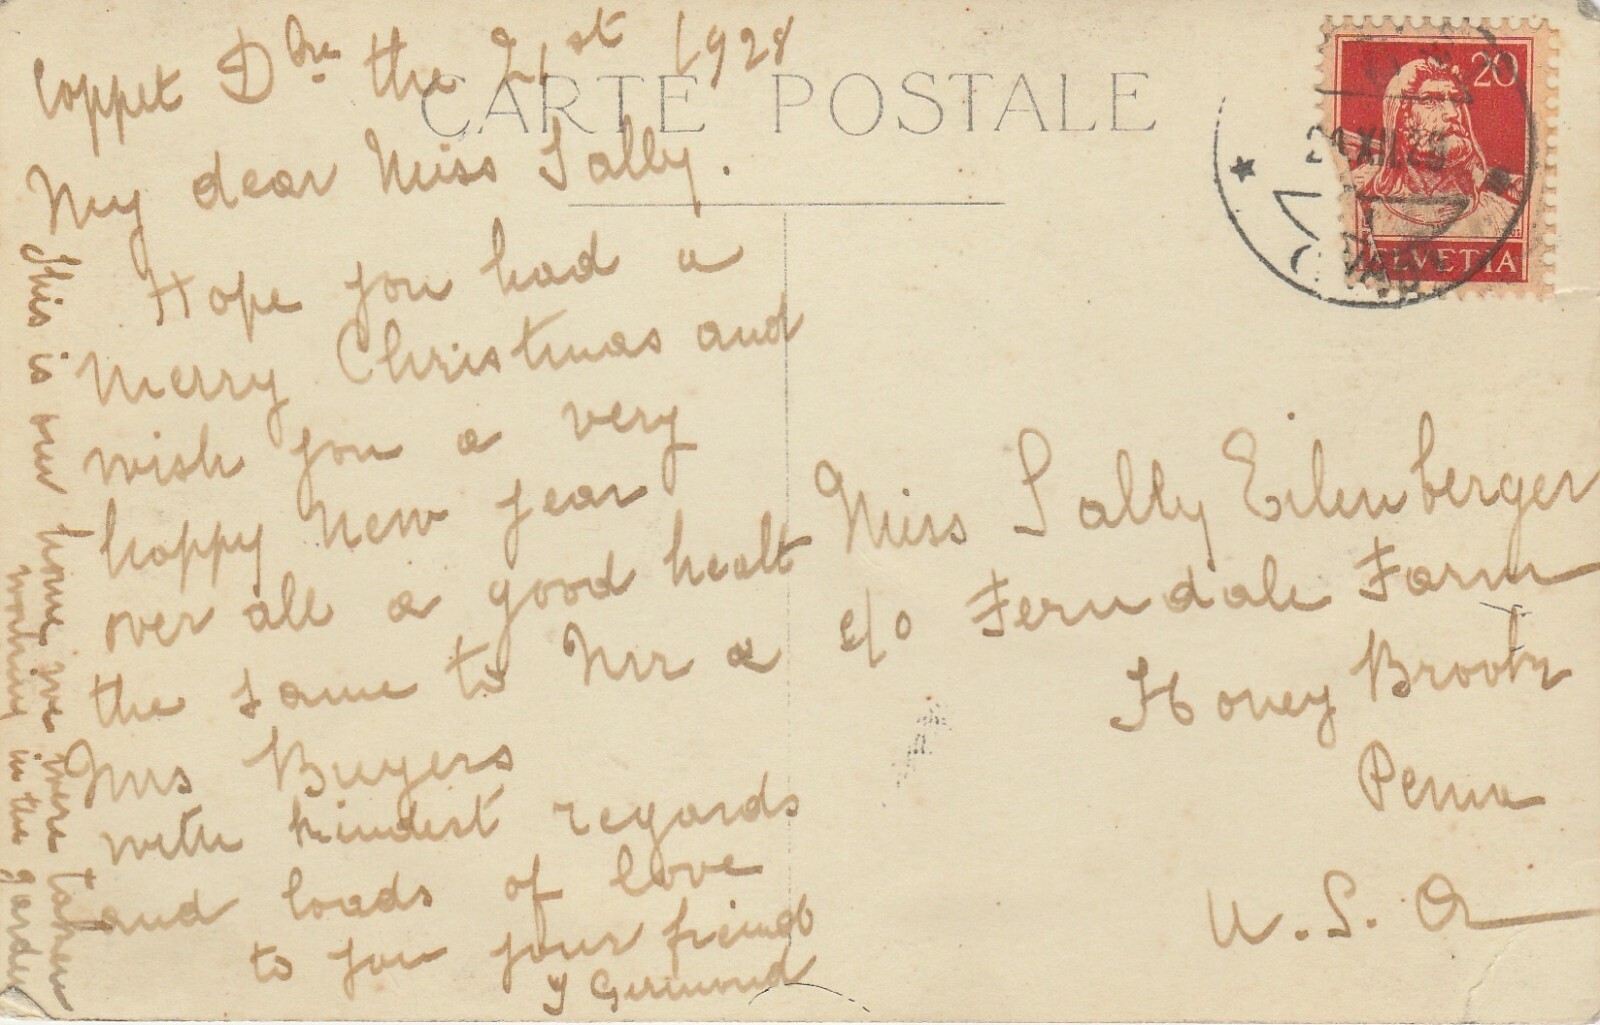 Coppet Dbre the 21st 1928
CARTE POSTALE
My dear Miss Sally.
Hope you had a
Merry Christmas and
wish you a very
happy New year
over all a good healt
the same to Mr &
Mrs Buyers
with kindest regards
and loads of love
to you your friend
Y Germond
This is our home, we were taken
working in the garden
20
HELVETIA
Miss Sally Eilenberger
c/o Ferndale Farm
Honey Brook
Penna
U.S.A